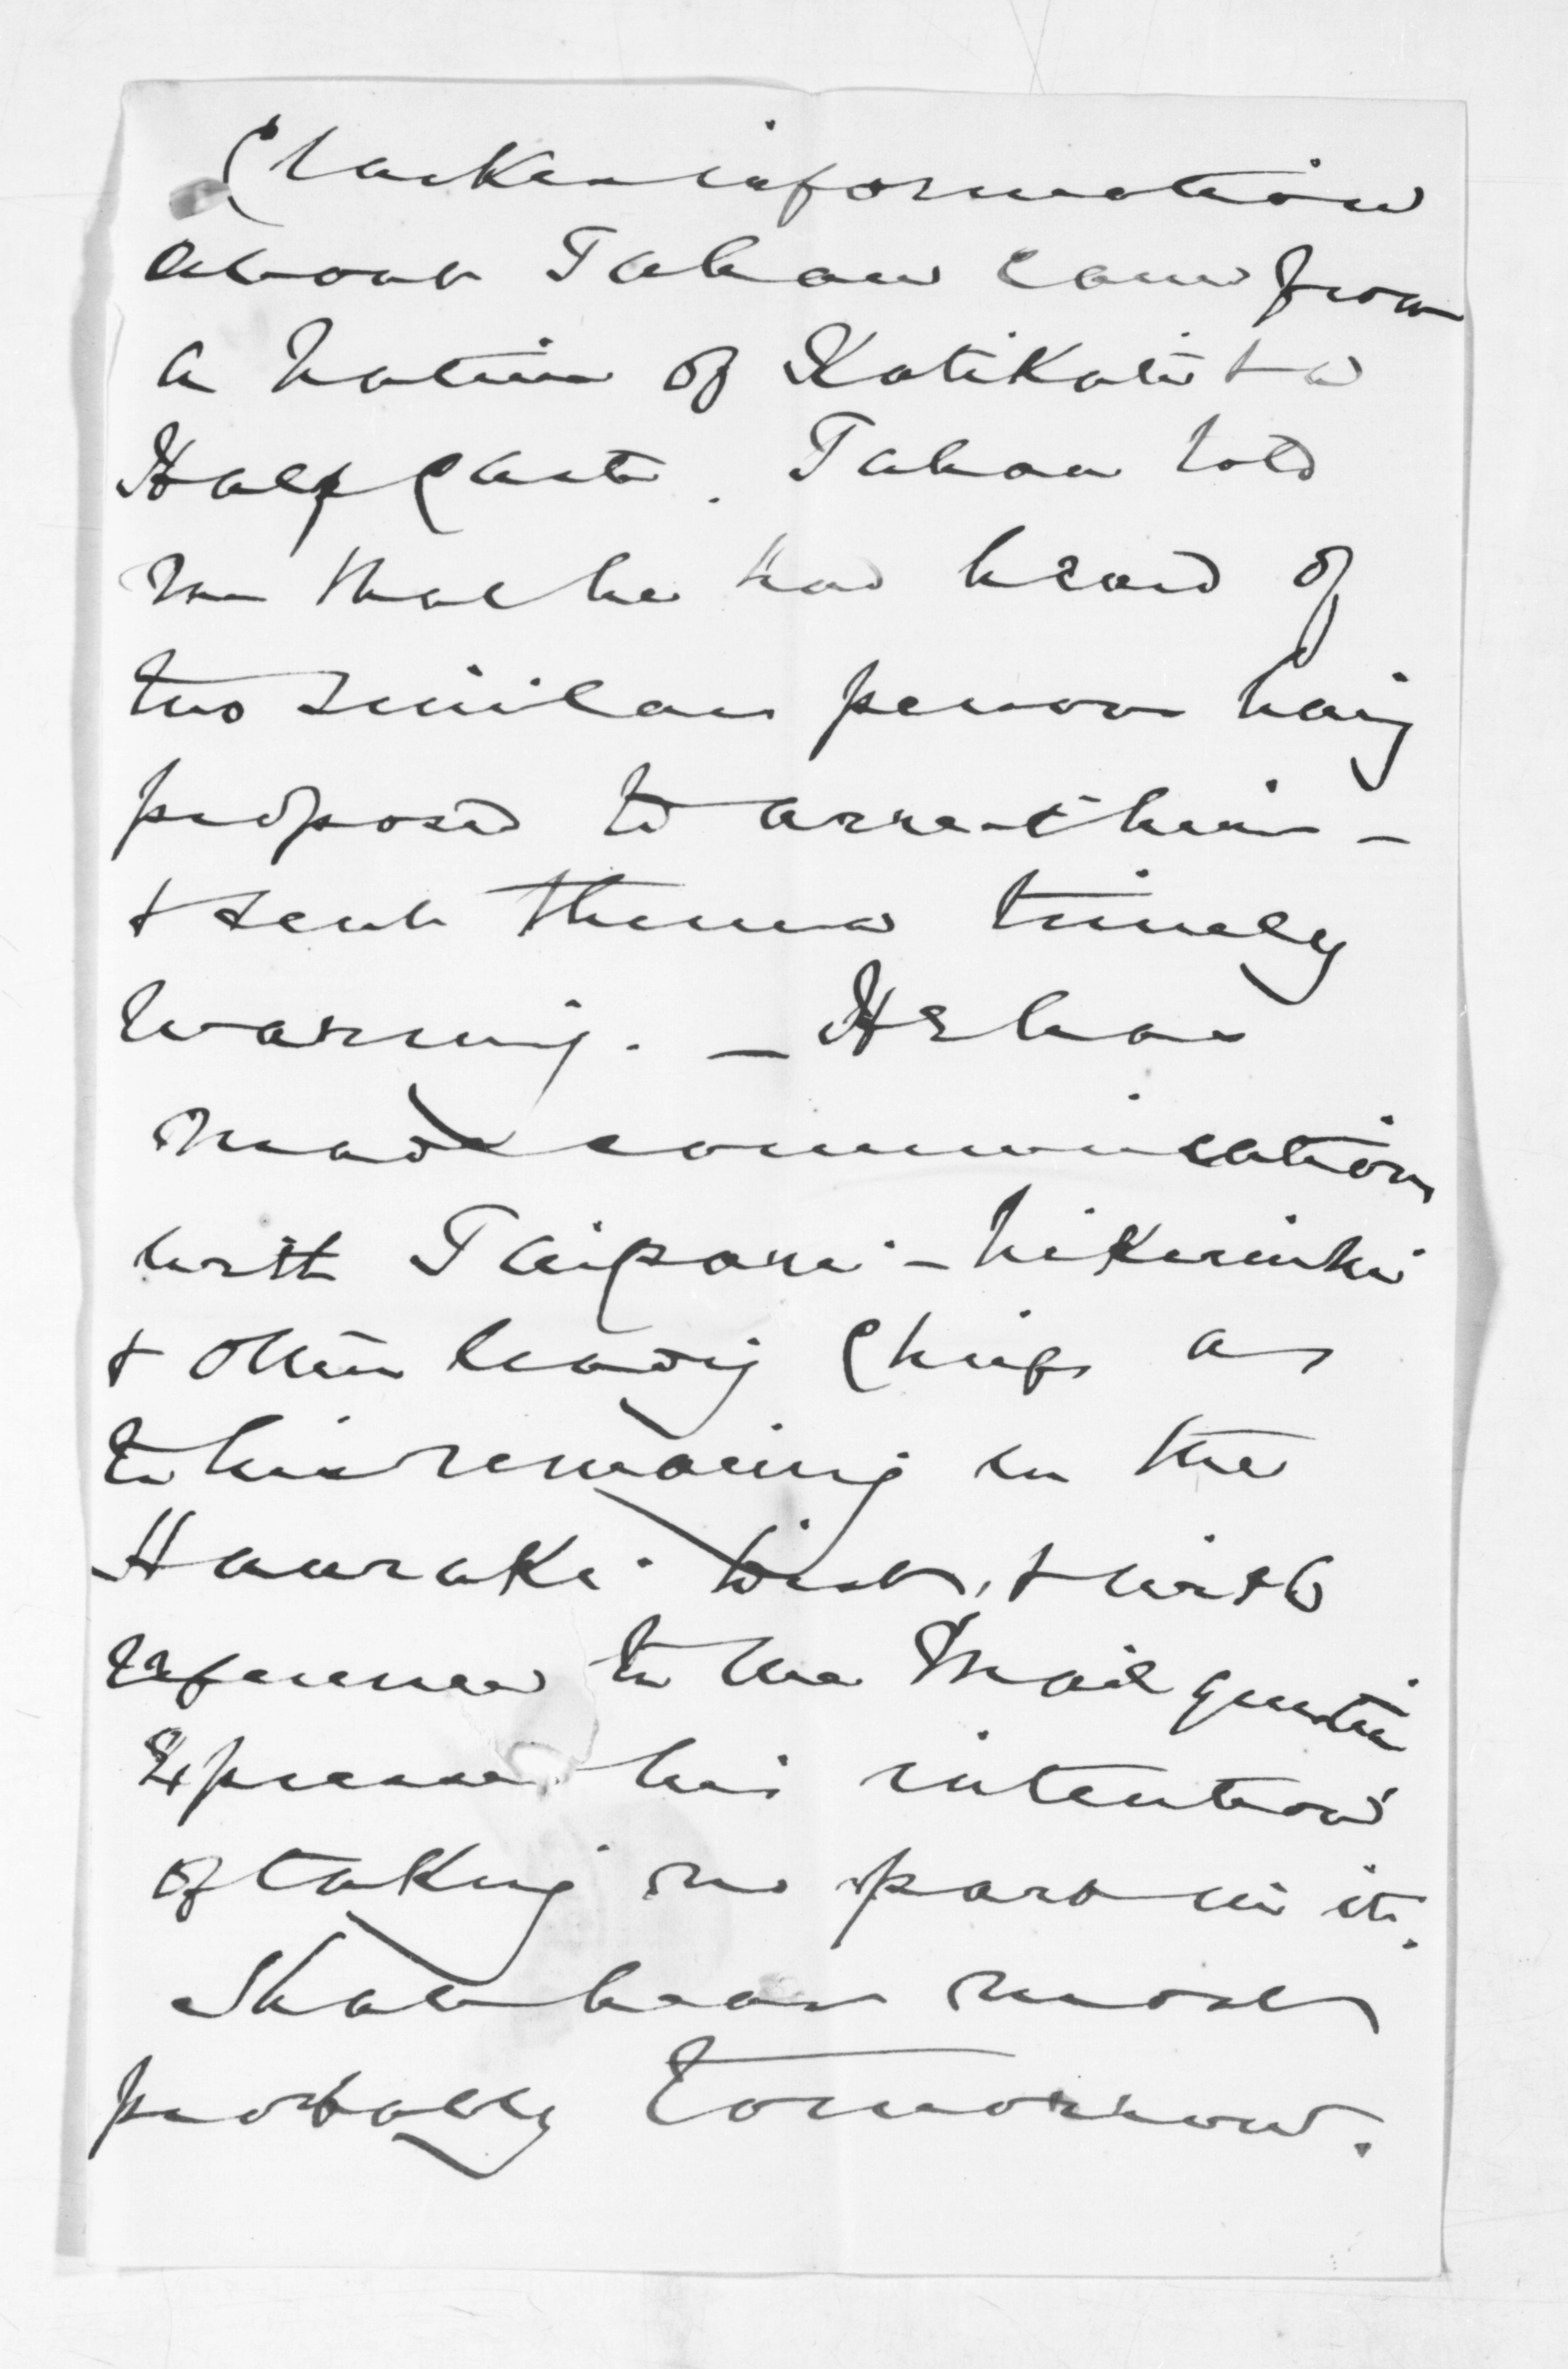 Clarke's information
about Tukukino came from
a native of Katikati & a
Half Caste. Tukukino told
me that he had heard of
two similar persons having
proposed to arrest him -
& sent them timely
warning. - He has
made communication
with Taipari -
& other leading Chiefs as
to his remaining in the
Hauraki Dist., & with
reference to the Mail question
Express his intention
of taking no part in it.
Shall hear more
probably tomorrow.